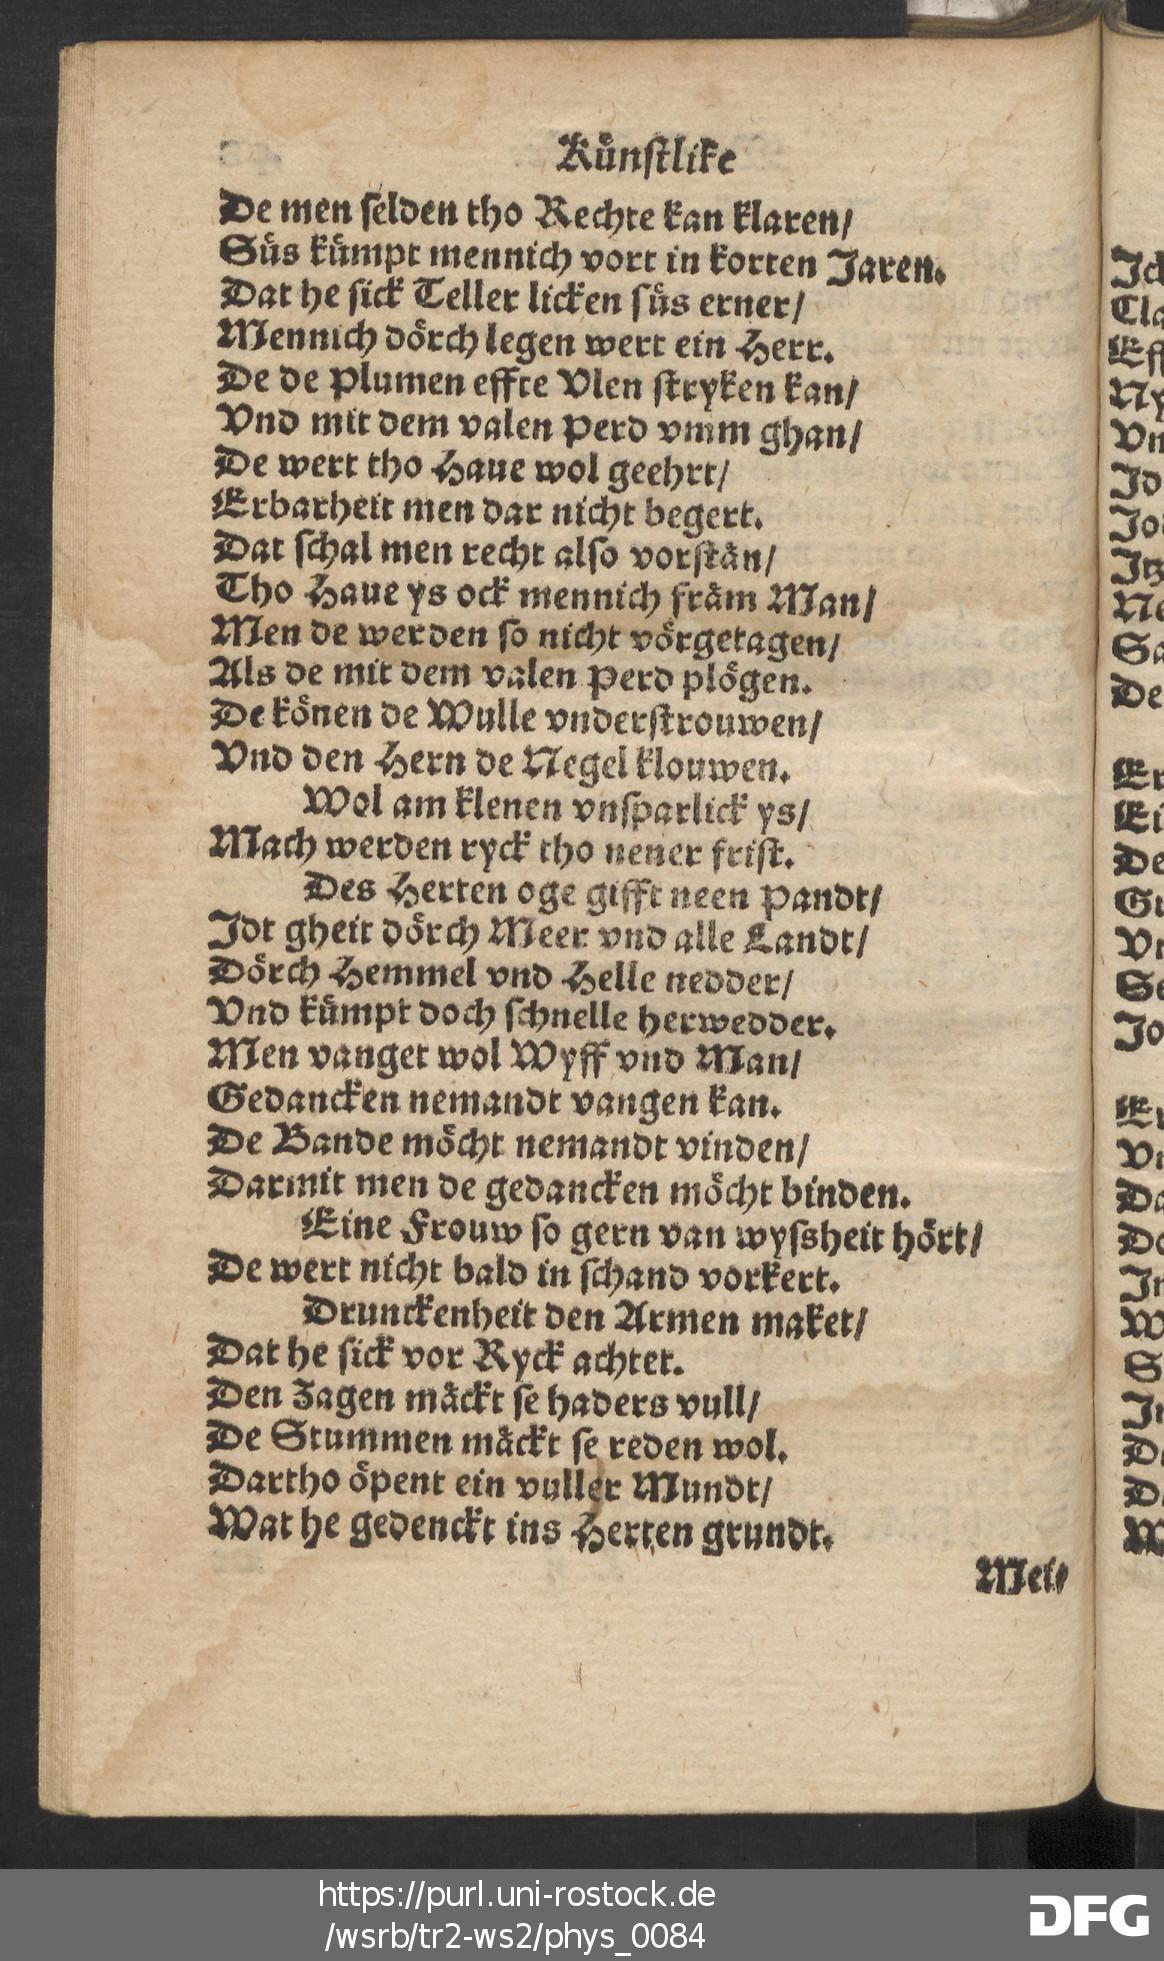 Kuͤnſtlike
De men ſelden tho Rechte kan klaren/
Suͤs kuͤmpt mennich vort in korten Jaren.
Dat he ſick Teller licken ſuͤs erner/
Mennich doͤrch legen wert ein Herr.
De de Plumen effte Vlen ſtryken kan/
Vnd mit dem valen Perd vmm ghan/
De wert tho Haue wol geehrt/
Erbarheit men dar nicht begert.
Dat ſchal men recht alſo vorſtaͤn/
Tho Haue ys ock mennich fraͤm Man/
Men de werden ſo nicht voͤrgetagen/
Als de mit dem valen Perd ploͤgen.
De koͤnen de Wulle vnderſtrouwen/
Vnd den Hern de Negel klouwen.
Wol am klenen vnſparlick ys/
Mach werden ryck tho nener friſt.
Des Herten oge gifft neen Pandt/
Jdt gheit doͤrch Meer vnd alle Landt/
Doͤrch Hemmel vnd Helle nedder/
Vnd kuͤmpt doch ſchnelle herwedder.
Men vanget wol Wyff vnd Man/
Gedancken nemandt vangen kan.
De Bande moͤcht nemandt vinden/
Darmit men de gedancken moͤcht binden.
Eine Frouw ſo gern van wyſsheit hoͤrt/
De wert nicht bald in ſchand vorkert.
Drunckenheit den Armen maket/
Dat he ſick vor Ryck achtet.
Den Zagen maͤckt ſe haders vull/
De Stummen maͤckt ſe reden wol.
Dartho oͤpent ein vuller Mundt/
Wat he gedenckt ins Herten grundt.
https://purl.uni-rostock.de
/wsrb/tr2-ws2/phys_0084
DFG